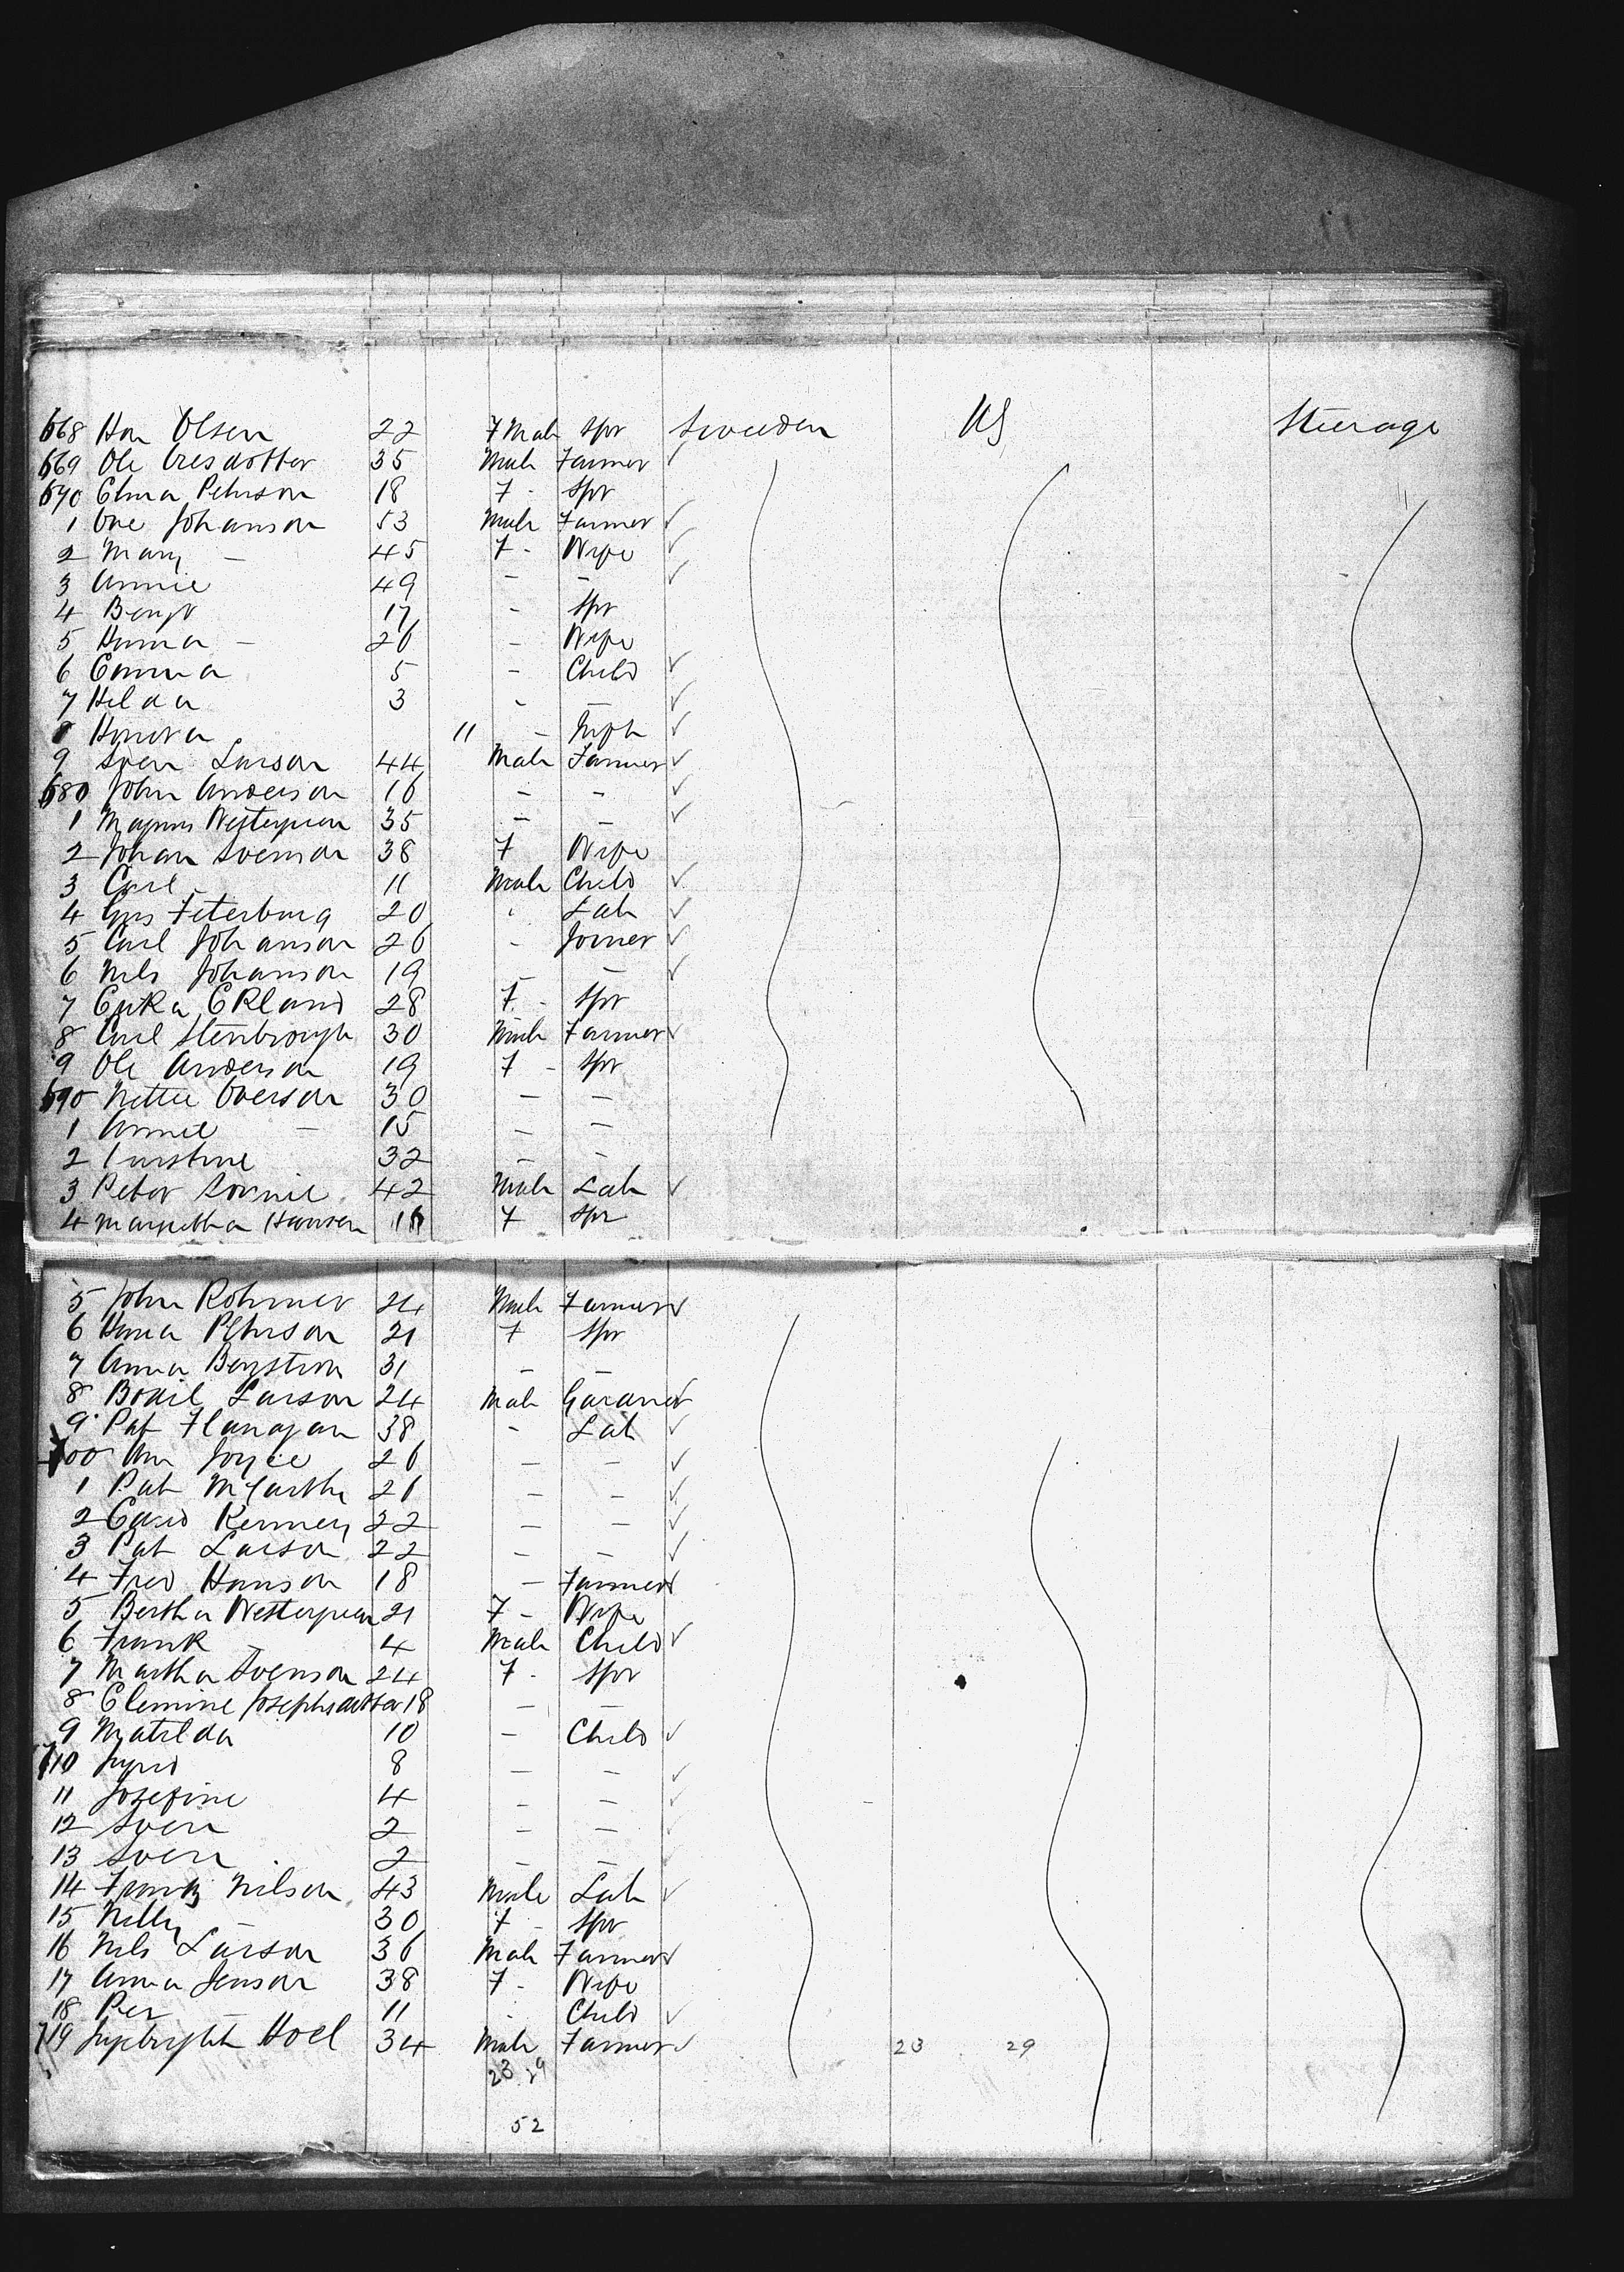 668 Han Olsen 22 F Male Spr Sweden US Steerage
669 Ole Ovesdotter 35 Male Farmer ✓
670 Elna Pehrson 18 F - Spr
1 Ove Johanson 53 Male Farmer ✓
2 Mary — 45 F - Wife ✓
3 Annie 49 - - ✓
4 Bengt 17 - Spr
5 Hanna — 26 - Wife
6 Emma 5 - Child ✓
7 Hilda 3 - — ✓
8 11 - Inft ✓
9 Sven Larson 44 Male Farmer ✓
680 John Anderson 16 - - ✓
1 Magnus Westergren 35 - - ✓
2 Johan Svenson 38 F Wife
3 Carl - 11 Male Child ✓
4 Gus 20 - Lab ✓
5 Carl Johanson 26 - Joiner ✓
6 Nels Johanson 19 - — ✓
7 Ekland 28 F - Spr
8 Carl Stenbrough 30 Male Farmer ✓
9 Ole Anderson 19 F - Spr
690 Nettie Overson 30 — —
1 Annie — 15 — —
2 32 - -
3 Peter 42 Male Lab ✓
4 Margretha Hansen 16 F Spr
5 John Rohmer 24 Male Farmer ✓
6 Hana Pehrson 21 F Spr
7 Anna Bergstrom 31 — —
8 Bodil Larson 24 Male Gardner ✓
9 Pat Flanagan 38 - Lab ✓
700 Joyce 26 — — ✓
1 Pat McCarthy 26 — — ✓
2 Kenney 22 — — ✓
3 Pat Larson 22 - - ✓
4 Fred Hanson 18 — Farmer ✓
5 Bertha Westergren 21 F - Wife
6 Frank - 4 Male Child ✓
7 Martha Svenson 24 F - Spr
8 Clemine Josephsdotter 18 — —
9 Matilda 10 — Child ✓
710 8 — — ✓
11 Josefine 4 — — ✓
12 Sven 2 — — ✓
13 Sven 2 — — ✓
14 Nilson 43 Male Lab ✓
15 Nelly — 30 F - Spr
16 Nels Larson 36 Male Farmer ✓
17 Anna Jenson 38 F - Wife
18 Per — 11 - Child ✓
719 Hoel 34 Male Farmer ✓ 23 29
23 29
52